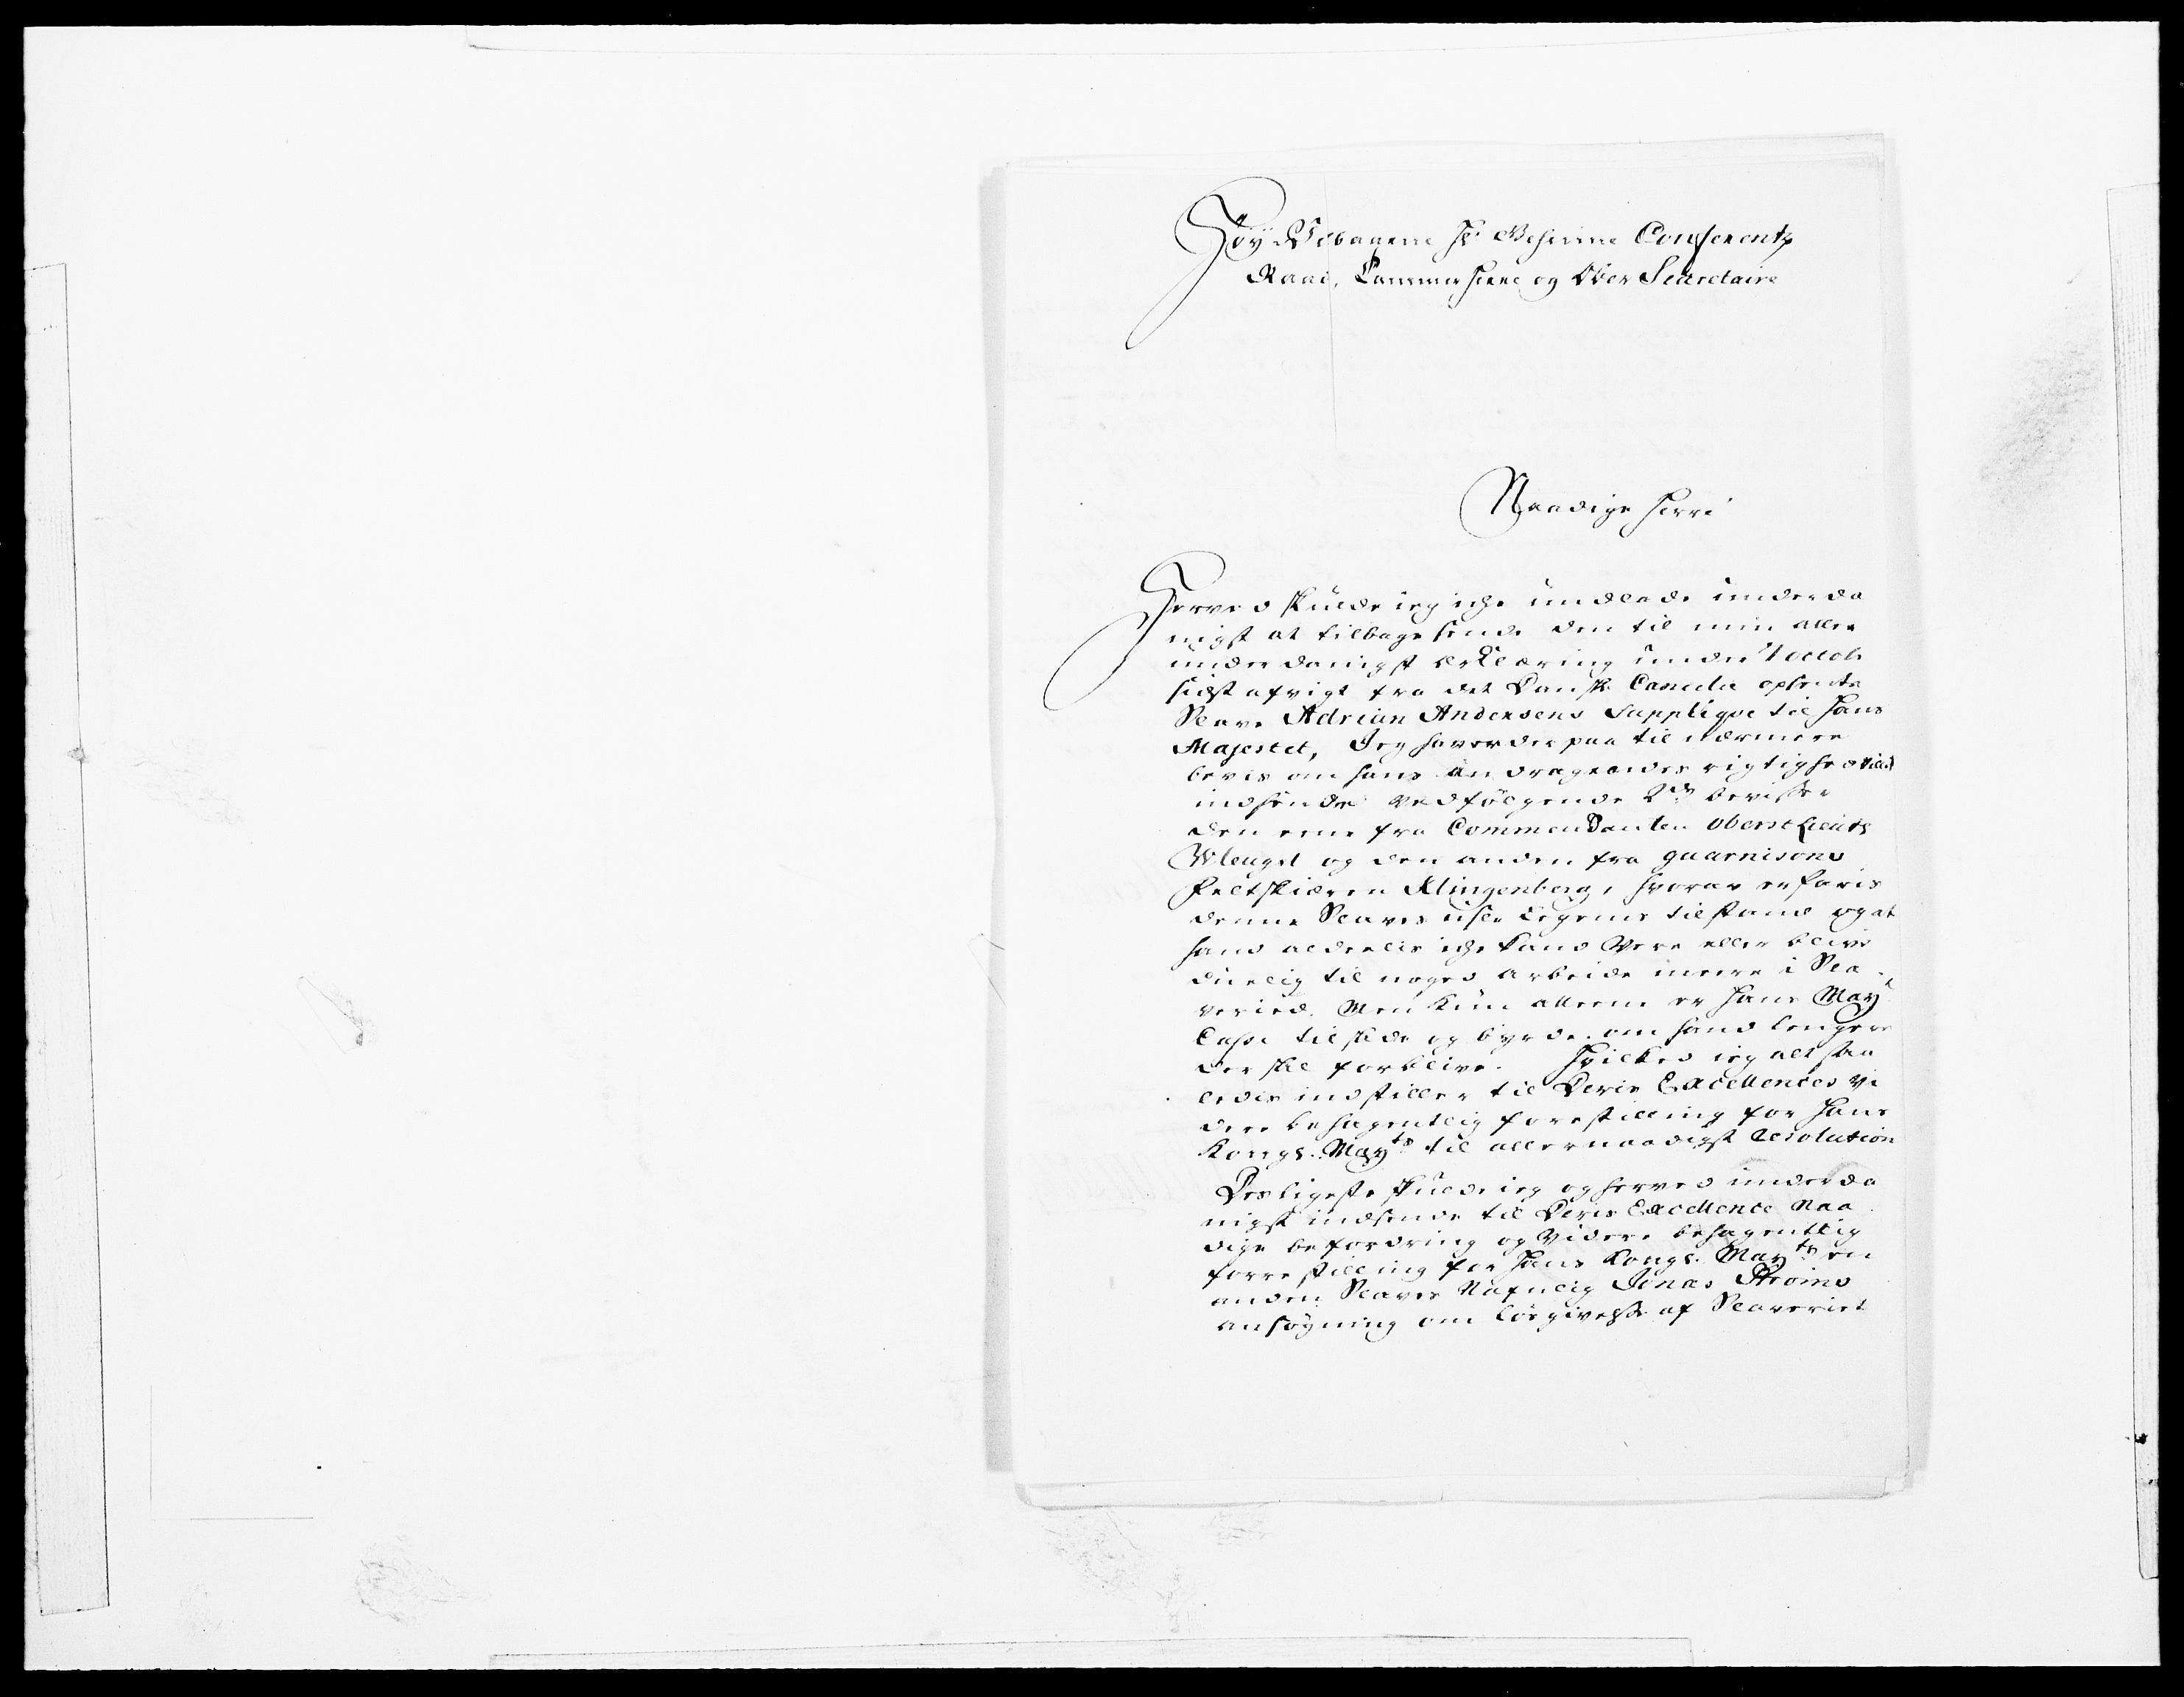 HøyÆdbaarne Hr Geheime Conferentz
Raad, Cammerherre og Ober Secretaire
Naadige Herre
Herved skulde ieg iche undlade underda
nigst at tilbage sende den til min aller
underdanigst erklæring under 7 octob
sidst afvigt fra det Danske Cancelie opsendte
Slave Adrian Andersens Supplique til Hans
Majestet, Jeg haver der paa til nærmere
bevis om hans andragendes rigtighed villet
indsende vedfølgende 2de bevisser
den eene fra Commendanten Oberstlieut
Wleugel og den anden fra guarnisons
Feltskiæren Klingenberg, hvorav erfaris
denne Slaves usle legems tilstand og at
hand alderlis iche kand Være eller blive
duelig til noged arbeide meere i Sla
veried. Men kun alleene er Hans May
Casse til slide og byrde om hand lengere
der skal forblive. Hvilked ieg alt saa
ledis indstiller til Deris Excellences vi
dere behagentlig forestilling for Hans
Kongl. Mayts til allernaadigst resolution
Desligeste skulde ieg og herved underda
nigst indsende til Deris Excellence Naa
dige befordring og Videre behagentlig
forrestilling for Hans Kongl. Mayts en
anden Slaves Nafnlig Jonas Strøms
ansøgning om løsgivelse af Slaveriet